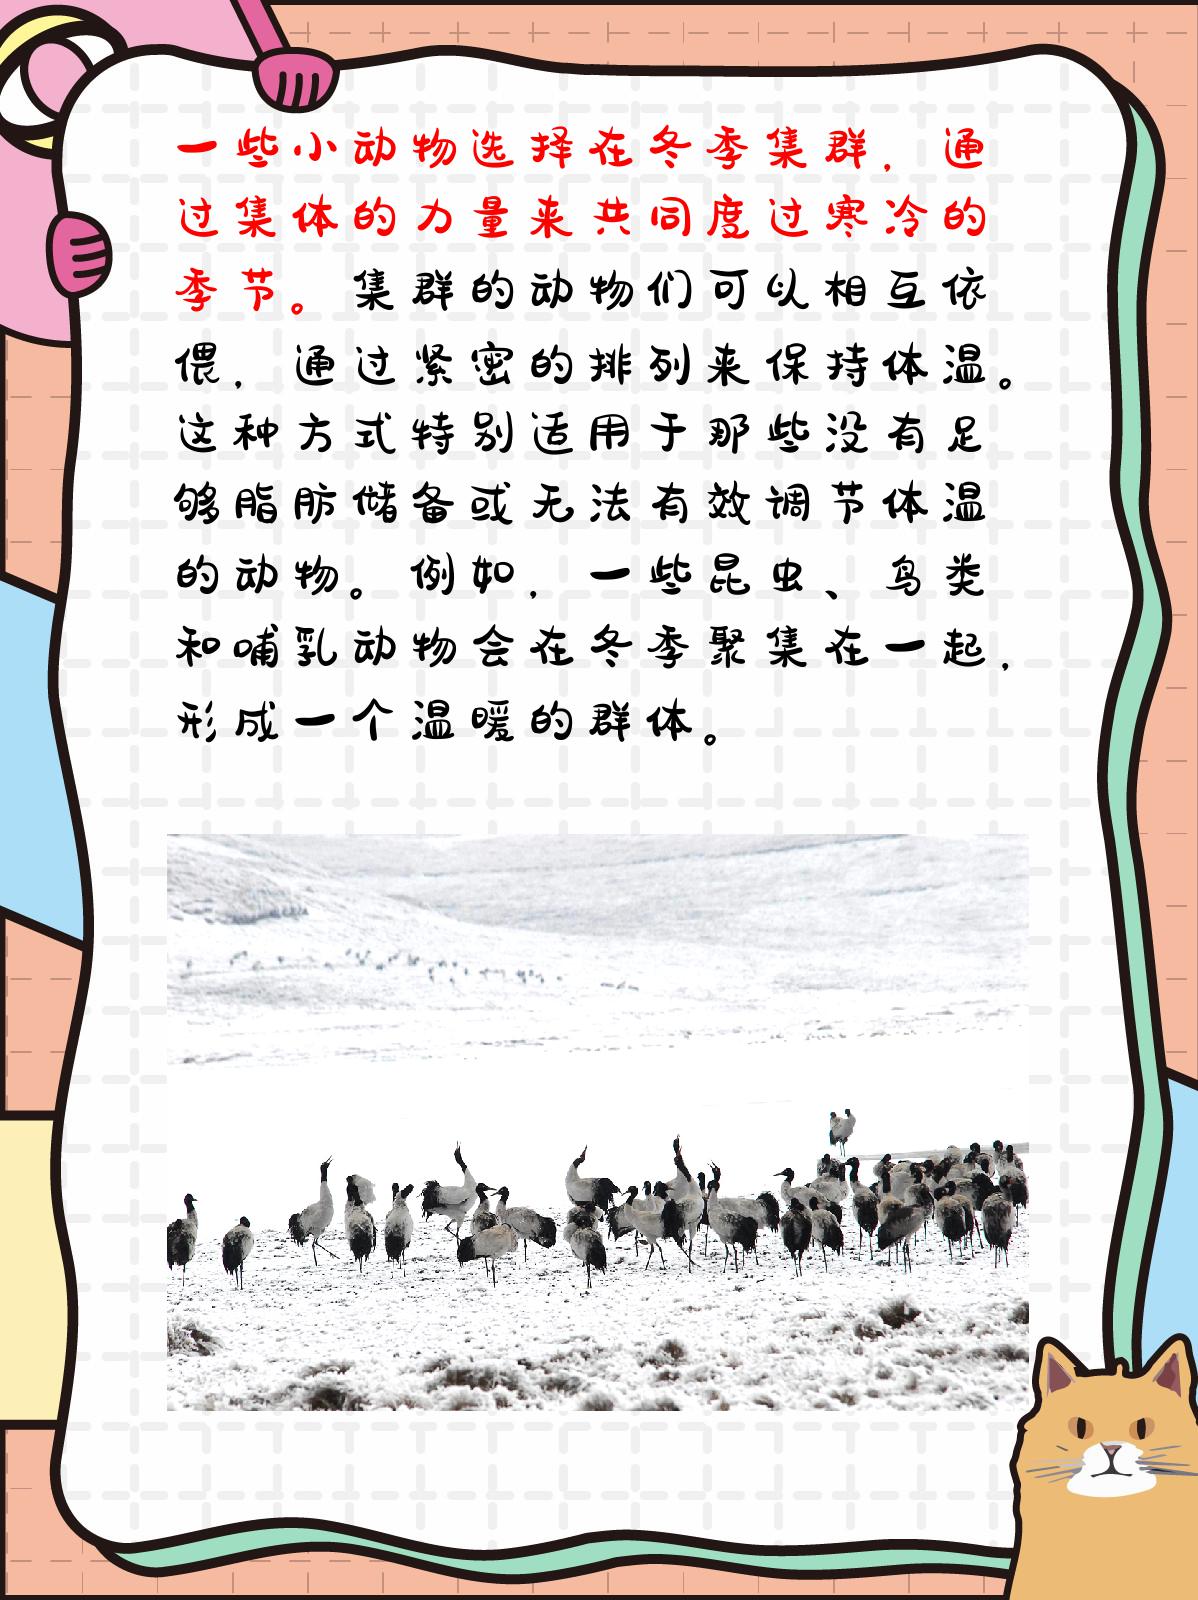 一些小动物选择在冬季集群，通
过集体的力量来共同度过寒冷的
季节。集群的动物们可以相互依
偎，通过紧密的排列来保持体温。
这种方式特别适用于那些没有足
够脂肪储备或无法有效调节体温
的动物。例如，一些昆虫、鸟类
和哺乳动物会在冬季聚集在一起，
形成一个温暖的群体。